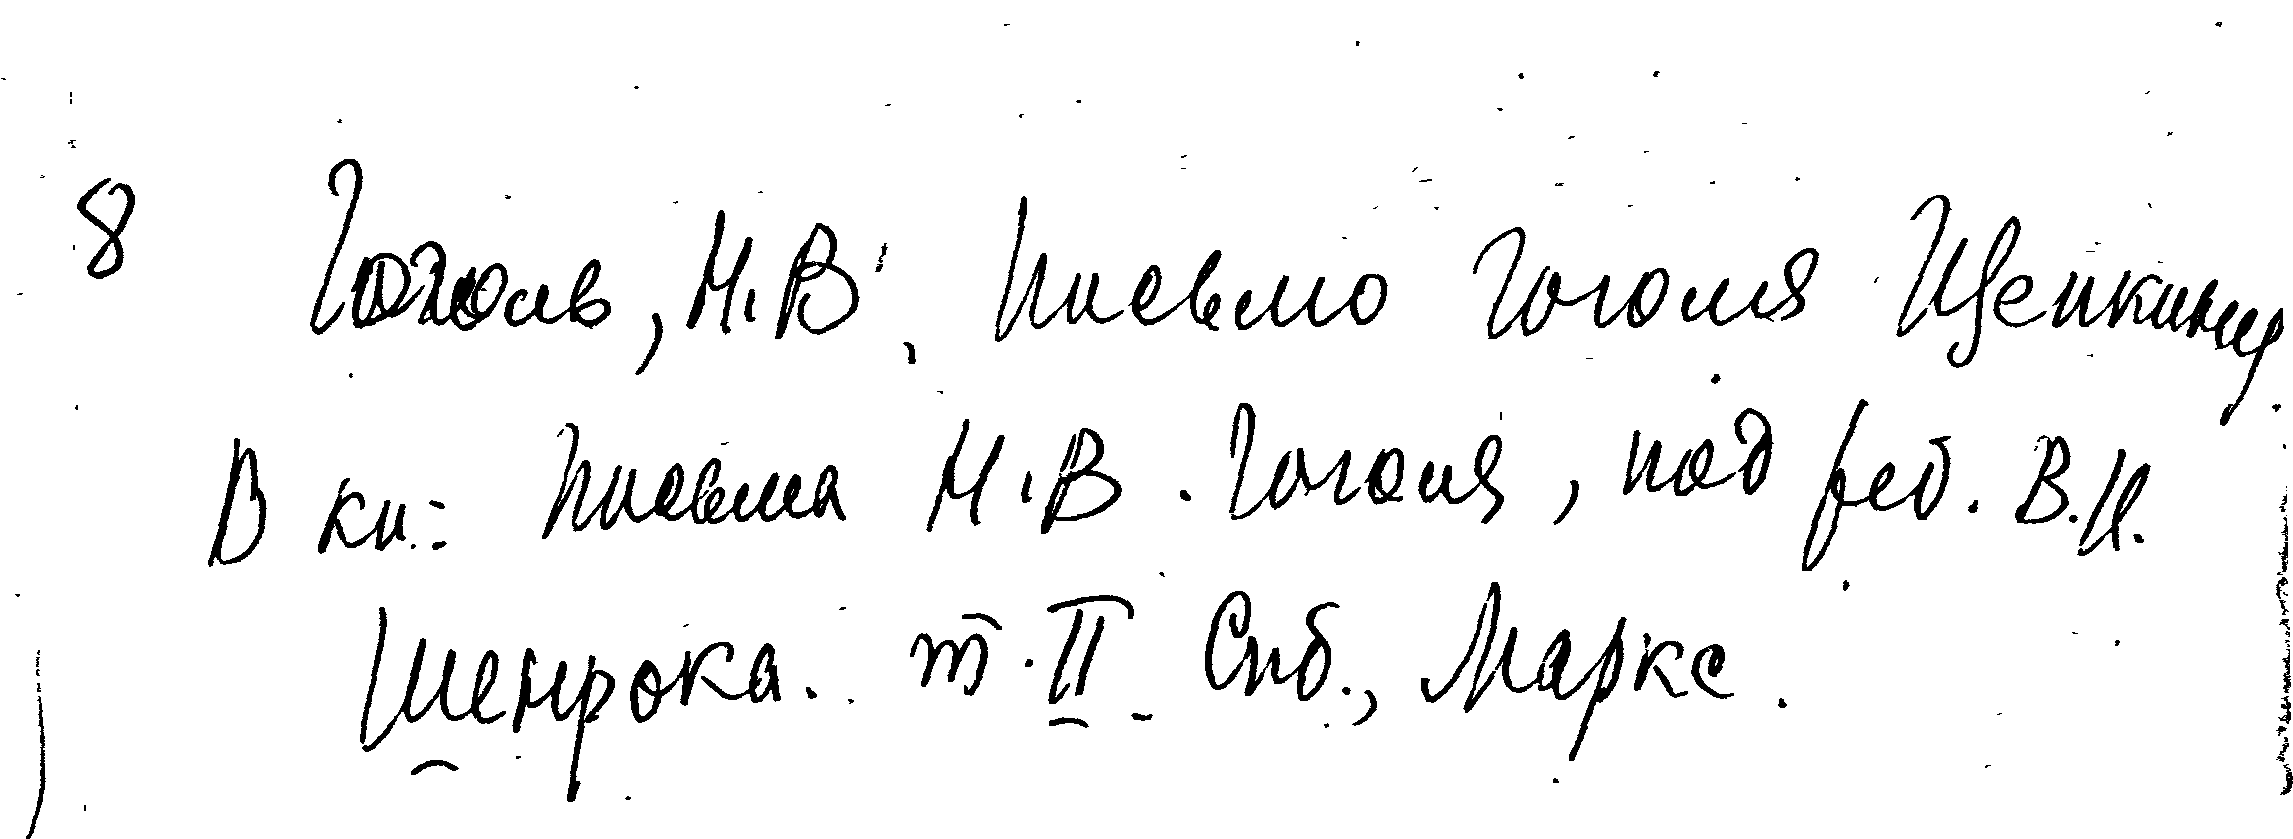 8 Гоголь, Н.В. Письмо Гоголя Щепкину.
В кн.: Письма Н.В. Гоголя, под ред. В.И.
Шенрока. т. II. Спб., Маркс.